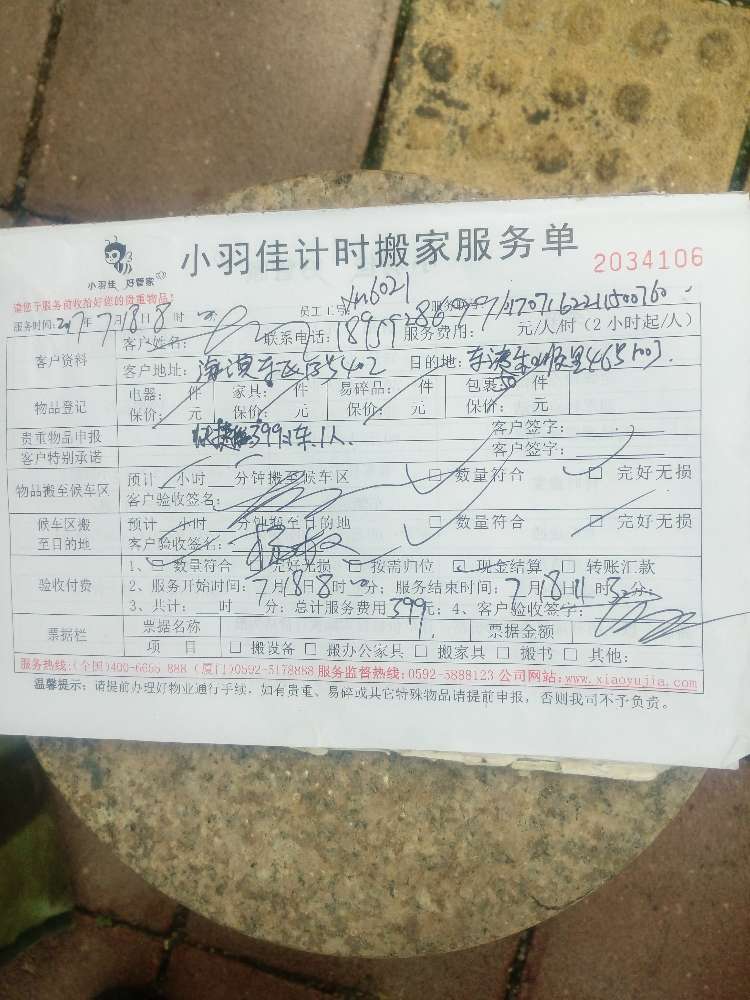 小羽佳计时搬家服务单
2034106
小羽佳 好管家
请您于服务前收拾好您的贵重物品!
员工工号: Xm6021 服务编号: 170716221500760
服务时间: 2017年7月18日8时 分
客户资料
客户姓名: 联系电话: 服务费用: 元/人/时 (2小时起/人)
客户地址: 5402 目的地: 1003
物品登记
电器: 件 家具: 件 易碎品: 件 包裹: 50 件
保价: 元 保价: 元 保价: 元 保价: 元
贵重物品申报 399 1车1人 客户签字:
客户特别承诺 客户签字:
物品搬至候车区
预计 小时 分钟搬至候车区 □ 数量符合 □ 完好无损
客户验收签名:
候车区搬至目的地
预计 小时 分钟搬至目的地 □ 数量符合 □ 完好无损
客户验收签名:
验收付费
1、□ 数量符合 □ 完好无损 □ 按需归位 □ 现金结算 □ 转账汇款
2、服务开始时间: 7月18日8时 分; 服务结束时间: 7月18日11时30分;
3、共计: 时 分; 总计服务费用399元; 4、客户验收签字:
票据栏
票据名称 票据金额
项 目 □ 搬设备 □ 搬办公家具 □ 搬家具 □ 搬书 □ 其他:
服务热线:(全国)400-6656-888 (厦门)0592-5178888 服务监督热线:0592-5888123 公司网站:www.xiaoyujia.com
温馨提示: 请提前办理好物业通行手续, 如有贵重、易碎或其它特殊物品请提前申报, 否则我司不予负责。